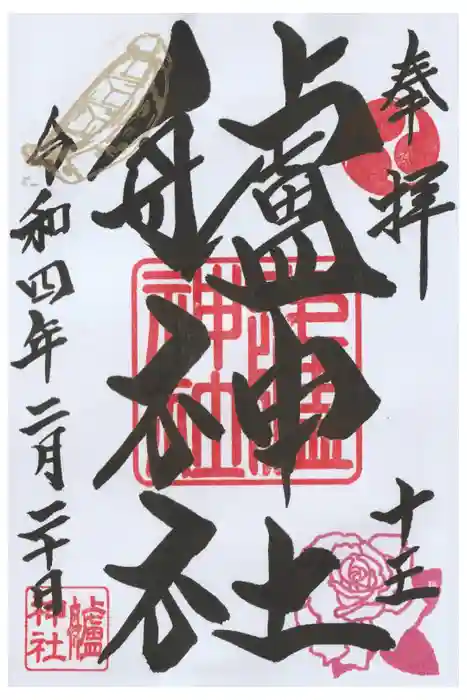 奉拝
十王
艫神社
令和四年二月二十日
艫神社